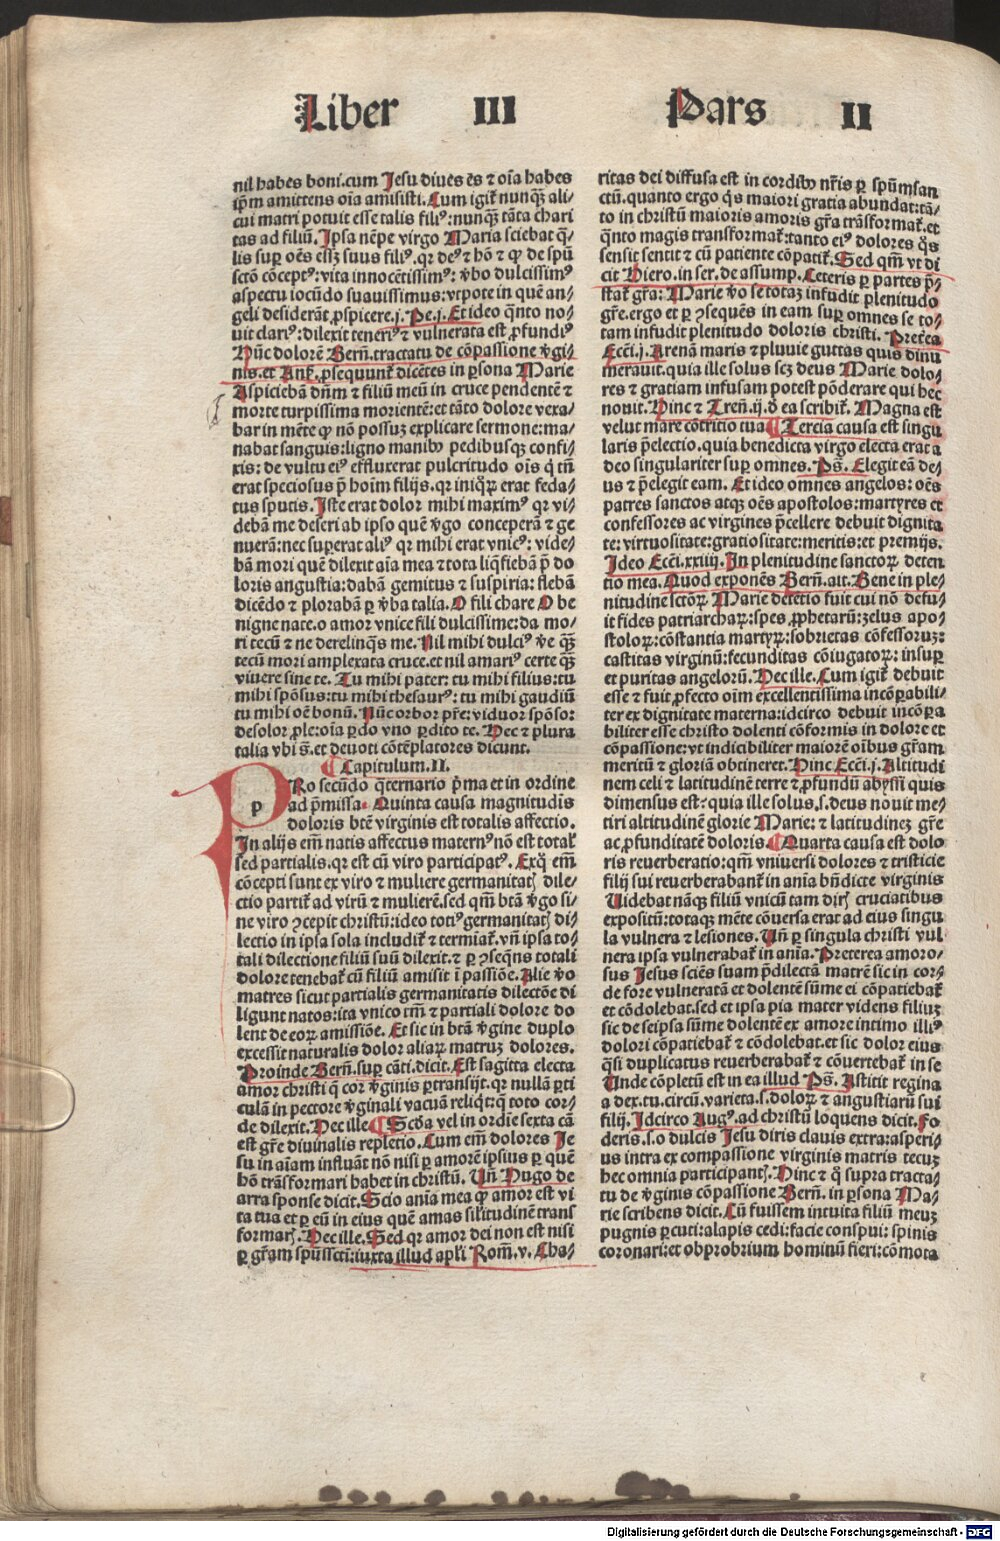 Liber III Pars II
nil habes boni.cum Jesu diues es ⁊ oĩa habes
ip̃m amittens oĩa amisisti. Cum igit̃ nunqᷓ ali⸗
cui matri potuit esse talis filiꝰ: nunqᷓ tãta chari
tas ad filiũ. Ipsa nẽpe virgo Maria sciebat q̃⸗
lis sup̲ oẽs essꝫ suus filiꝰ. qꝛ deꝰ ⁊ hõ ⁊ ꝙ de spũ
sctõ cõceptꝰ: vita innocẽtissimꝰ: ṽbo dulcissimꝰ
aspectu iocũdo suauissimus: vtpote in quẽ an⸗
geli desiderãt ꝓspicere.j. Pe.j. Et ideo q̃nto no⸗
uit clariꝰ: dilexit teneriꝰ ⁊ vulnerata est ꝓfundiꝰ
Hũc dolorẽ Berñ. tractatu de cõpassione ṽgi⸗
nis. et Anß. ꝓsequunt̃ dicẽtes in ꝑsona Marie
Aspiciebã dñm ⁊ filiũ meũ in cruce pendentẽ ⁊
morte turpissima morientẽ: et tãto dolore vexa⸗
bar in mẽte ꝙ nõ possuꝫ explicare sermone: ma⸗
nabat sanguis: ligno manibꝰ pedibusqꝫ confi⸗
xis: de vultu eiꝰ effluxerat pulcritudo oĩs q̃ tm̃
erat speciosus p̃ hoĩm filijs. qꝛ iniqꝝ erat feda⸗
tus sputis. Iste erat dolor mihi maximꝰ qꝛ vi⸗
debã me deseri ab ipso quẽ ṽgo conceperã ⁊ ge
nuerã: nec sup̲erat aliꝰ qꝛ mihi erat vnicꝰ: vide⸗
bã mori quẽ dilexit aĩa mea ⁊ tota liq̃fiebã p̃ do
loris angustia: dabã gemitus ⁊ suspiria: flebã
dicẽdo ⁊ plorabã ꝑ ṽba talia. O fili chare O be
nigne nate. o amor vnice fili dulcissime: da mo⸗
ri tecũ ⁊ ne derelinq̃s me. Nil mihi dulciꝰ ṽe qᷓꝫ
tecũ mori amplexata cruce. et nil amariꝰ certe qᷓꝫ
viuere sine te. Tu mihi pater: tu mihi filius: tu
mihi spõsus: tu mihi thesaurꝰ: tu mihi gaudiũ
tu mihi oẽ bonũ. Nũc orbor pr̃e: viduor spõso:
desolor ꝓle: oĩa ꝑdo vno ꝑdito te. Hec ⁊ plura
talia vbi s̃. et deuoti cõtẽplatores dicunt.
¶ Capitulum. II.
p
PRo secũdo q̃ternario p̃ma et in ordine
ad p̃missa. Quinta causa magnitudis
doloris btẽ virginis est totalis affectio.
In alijs em̃ natis affectus maternꝰ nõ est total̕
sed partialis. qꝛ est cũ viro participatꝰ. Exq̃ em̃
cõcepti sunt ex viro ⁊ muliere germanitatꝭ dile⸗
ctio partit̃ ad virũ ⁊ mulierẽ. sed qm̃ btã ṽgo si⸗
ne viro ꝯcepit christũ: ideo totiꝰ germanitatꝭ di⸗
lectio in ipsa sola includit̃ ⁊ termiat̃. vñ ipsa to⸗
tali dilectione filiũ suũ dilexit. ⁊ ꝑ ꝯseq̃ns totali
dolore tenebat̃ cũ filiũ amisit ĩ passiõe. Alie ṽo
matres sicut partialis germanitatis dilectõe di
ligunt natos: ita vnico tm̃ ⁊ partiali dolore do
lent de eoꝝ amissiõe. Et sic in btã ṽgine duplo
excessit naturalis dolor aliaꝝ matruꝫ dolores.
Proinde Berñ. sup̲ cãti. dicit. Est sagitta electa
amor christi q̃ cor ṽginis ꝑtransijt. qꝛ nullã ꝑti
culã in pectore ṽginali vacuã reliq̃t: q̃ toto cor⸗
de dilexit. Hec ille ¶ Scđa vel in ordie sexta cã
est gr̃e diuinalis repletio. Cum em̃ dolores Je
su in aĩam influãt nõ nisi ꝑ amorẽ ipsius ꝑ quẽ
hõ trãsformari habet in christũ. Uñ Hugo de
arra sponse dicit. Scio aĩa mea ꝙ amor est vi
ta tua et ꝑ eũ in eius quẽ amas sil̕itudinẽ trans
formarꝭ. Hec ille. Sed qꝛ amor dei non est nisi
ꝑ gr̃am spũssctĩ: iuxta illud apl̕i Rom̃.v. Cha⸗
ritas dei diffusa est in cordibꝰ nr̃is ꝑ spũmsan
ctũ. quanto ergo q̃s maiori gratia abundat: tã⸗
to in christũ maioris amoris gr̃a trãsformat̃. et
q̃nto magis transformat̃: tanto eiꝰ dolores q̃s
sensit sentit ⁊ cũ patiente cõpatit̃. Sed qm̃ vt di
cit Hiero. in ser. de assump. Ceteris ꝑ partes p̃⸗
stat̃ gr̃a: Marie ṽo se totaꝫ infudit plenitudo
gr̃e. ergo et ꝑ ꝯsequẽs in eam sup̲ omnes se to⸗
tam infudit plenitudo doloris christi. Preťea
Ecci.j. Arenã maris ⁊ pluuie guttas quis dinu
merauit. quia ille solus scꝫ deus Marie dolo⸗
res ⁊ gratiam infusam potest põderare qui hec
nouit. Hinc ⁊ Treñ.ij. đ ea scribit̃. Magna est
velut mare cõtritio tua ¶ Tercia causa est singu
laris p̃electio. quia benedicta virgo electa erat a
deo singulariter sup̲ omnes. Ps̃. Elegit eã de⸗
us ⁊ p̃elegit eam. Et ideo omnes angelos: oẽs
patres sanctos atqꝫ oẽs apostolos: martyres et
confessores ac virgines p̃cellere debuit dignita
te: virtuositate: gratiositate: meritis: et premijs.
Ideo Ecci.xxiiij. In plenitudine sanctoꝝ deten
tio mea. Quod exponẽs Berñ. ait. Bene in ple⸗
nitudine sctõꝝ Marie detẽtio fuit cui nõ defu⸗
it fides patriarchaꝝ: spes ꝓphetarũ: zelus apo⸗
stoloꝝ: cõstantia martyꝝ: sobrietas cõfessoruꝫ:
castitas virginũ: fecunditas cõiugatoꝝ: insup̲
et puritas angelorũ. Hec ille. Cum igit̃ debuit
esse ⁊ fuit ꝓfecto oĩm excellentissima incõꝑabili⸗
ter ex dignitate materna: idcirco debuit incõꝑa
biliter esse christo dolenti cõformis in dolore et
cõpassione: vt indicibiliter maiorẽ oĩbus gr̃am
meritũ ⁊ gloriã obtineret. Hinc Ecci.j. Altitudi
nem celi ⁊ latitudinẽ terre ⁊ ꝓfundũ abyssi quis
dimensus est: quia ille solus .s. deus nouit me⸗
tiri altitudinẽ glorie Marie: ⁊ latitudineꝫ gr̃e
ac ꝓfunditatẽ doloris. ¶ Quarta causa est dolo
ris reuerberatio: qm̃ vniuersi dolores ⁊ tristicie
filij sui reuerberabant̃ in aĩa bñdicte virginis
Uidebat nãqꝫ filiũ vnicũ tam dirꝭ cruciatibus
expositũ: totaqꝫ mẽte cõuersa erat ad eius singu
la vulnera ⁊ lesiones. Uñ ꝑ singula christi vul
nera ipsa vulnerabat̃ in aĩa. Preterea amoro⸗
sus Jesus sciẽs suam p̃dilectã matrẽ sic in cor⸗
de fore vulneratã et dolentẽ sũme ei cõpatiebat̃
et cõdolebat. sed et ipsa pia mater videns filiuꝫ
sic de seipsa sũme dolentẽ ex amore intimo illiꝰ
dolori cõpatiebat̃ ⁊ cõdolebat. et sic dolor eius
q̃si duplicatus reuerberabat̃ ⁊ cõuertebat̃ in se
Unde cõpletũ est in ea illud Ps̃. Astitit regina
a dex. tu. circũ. varieta. s. doloꝝ ⁊ angustiarũ sui
filij. Idcirco Augꝰ. ad christũ loquens dicit. Fo
deris .s. o dulcis Jesu diris clauis extra: asperi⸗
us intra ex compassione virginis matris tecuꝫ
hec omnia participantꝭ. Hinc ⁊ q̃ supra tracta⸗
tu de ṽginis cõpassione Berñ. in ꝑsona Ma⸗
rie scribens dicit. Cũ fuissem intuita filiũ meuꝫ
pugnis ꝑcuti: alapis cedi: facie conspui: spinis
coronari: et obprobrium hominũ fieri: cõmota
Digitalisierung gefördert durch die Deutsche Forschungsgemeinschaft - DFG